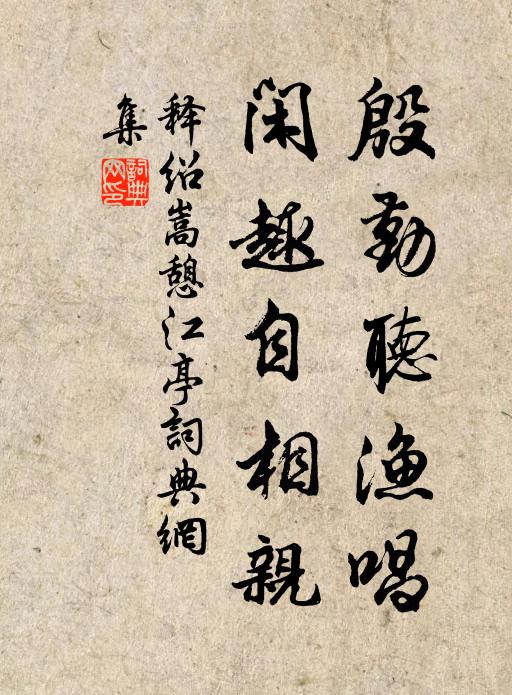 殷勤聽漁唱
閑趣自相親
释绍嵩憩江亭詞典網
集
詞典
网印